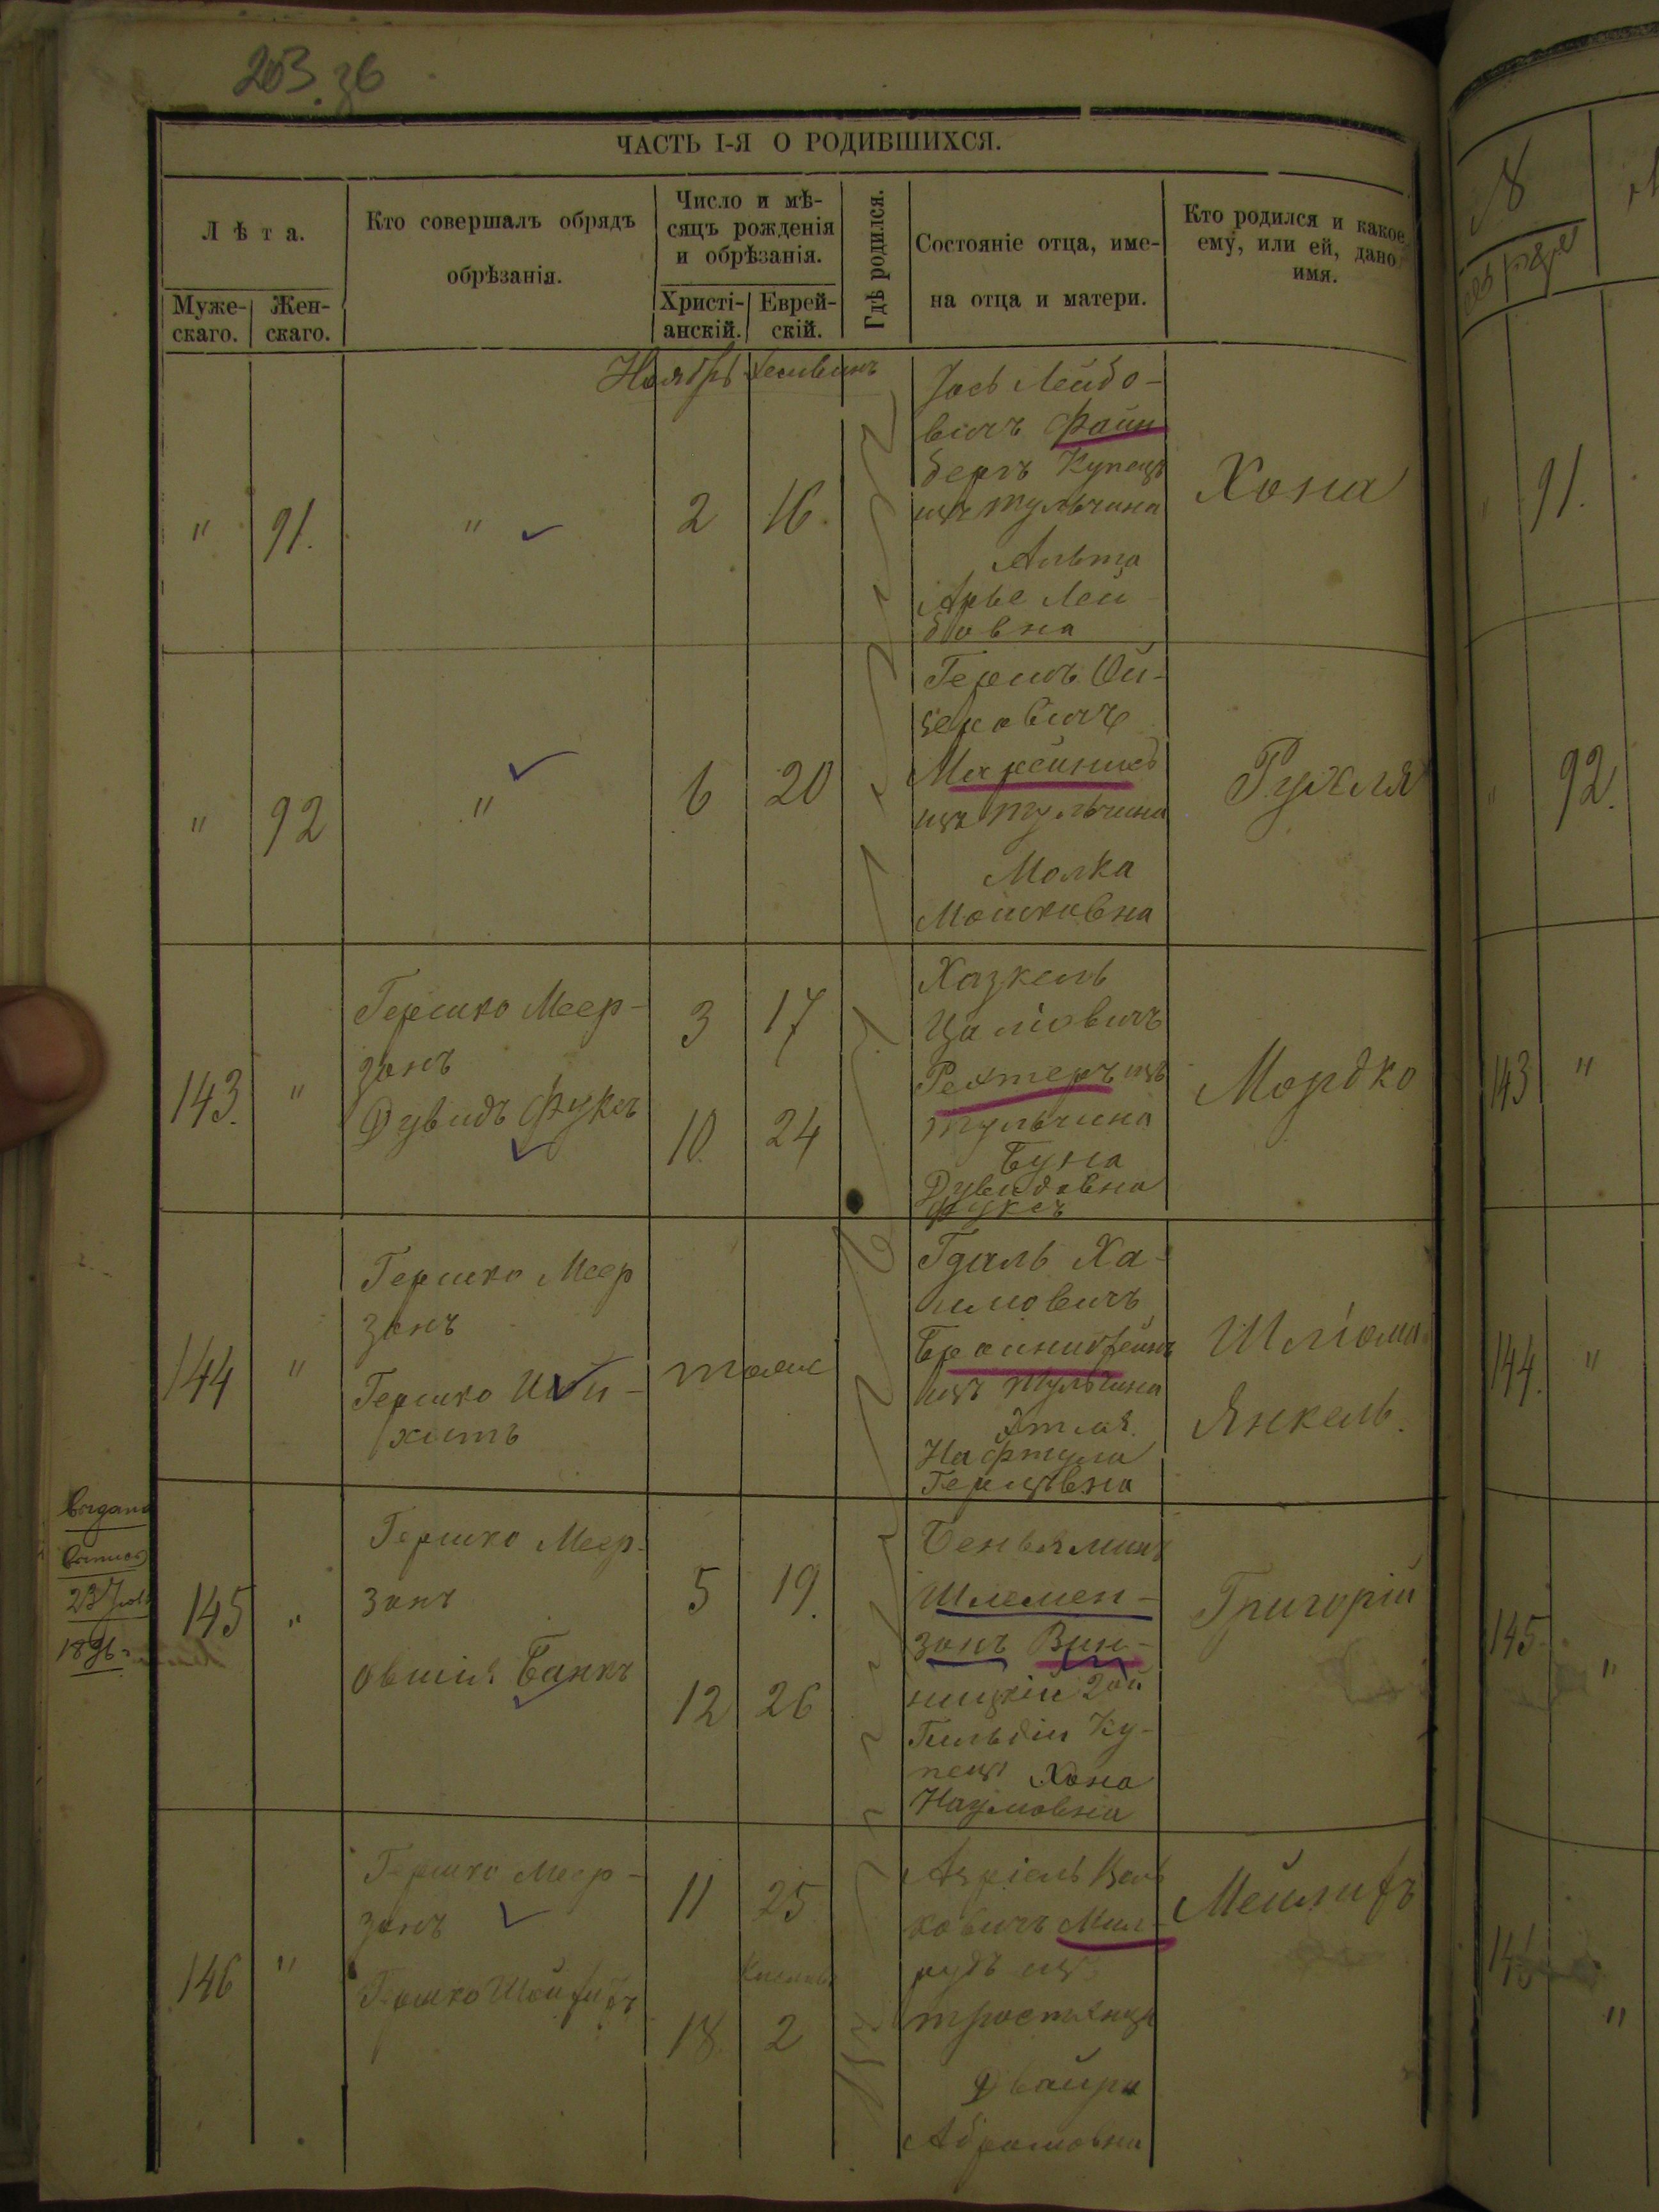 203 об
ЧАСТЬ I-Я О РОДИВШИХСЯ.
Лѣта.
Муже-
скаго.
Жен-
скаго.
Кто совершалъ обрядъ
обрѣзанія.
Число и мѣ-
сяцъ рожденія
и обрѣзанія.
Христі-
анскій.
Еврей-
скій.
Гдѣ родился.
Состояніе отца, име-
на отца и матери.
Кто родился и какое
ему, или ей, дано
имя.
Ноябрь Хешвинъ
" 91. " 2 16
Іось Лейбо-
вичъ Файн
бергъ Купецъ
изъ Тульчина
Альта
Арье Лей
бовна
Хона
" 92 " 6 20
Гершъ Ой-
зеровичъ
изъ Тульчина
Молка
Мошковна
Рухля
143. "
Гершко Меер-
занъ
Дувидъ Фуксъ
3 17
10. 24
Хазкель
Рехтеръ изъ
Тульчина
Буна
Дувидовна
Фуксъ
Мордко
144 "
Гершко Меер
занъ
Гершко Шой-
хитъ
тоже
Гдаль Ха-
имовичъ
Бронштейнъ
изъ Тульчина
Этля
Нафтула
Герцовна
Шліома
Янкель.
Выдана
выпись
23 Іюля
1896 г.
145 "
Гершко Меер-
занъ
Овшія Банкъ
5 19.
12 26
Беньяминъ
Шлемен-
зонъ Вин-
ницкій 2ой
Гильдіи Ку-
пецъ Хона
Наумовна
Григорій
146 "
Гершко Меер-
занъ
Гершко Шойхитъ
11 25
Кислевъ
18. 2
Азріель Вель
ковичъ Мил-
рудъ изъ
Тростянца
Двойра
Абрамовна
91.
92.
143 "
144. "
145. "
146 "